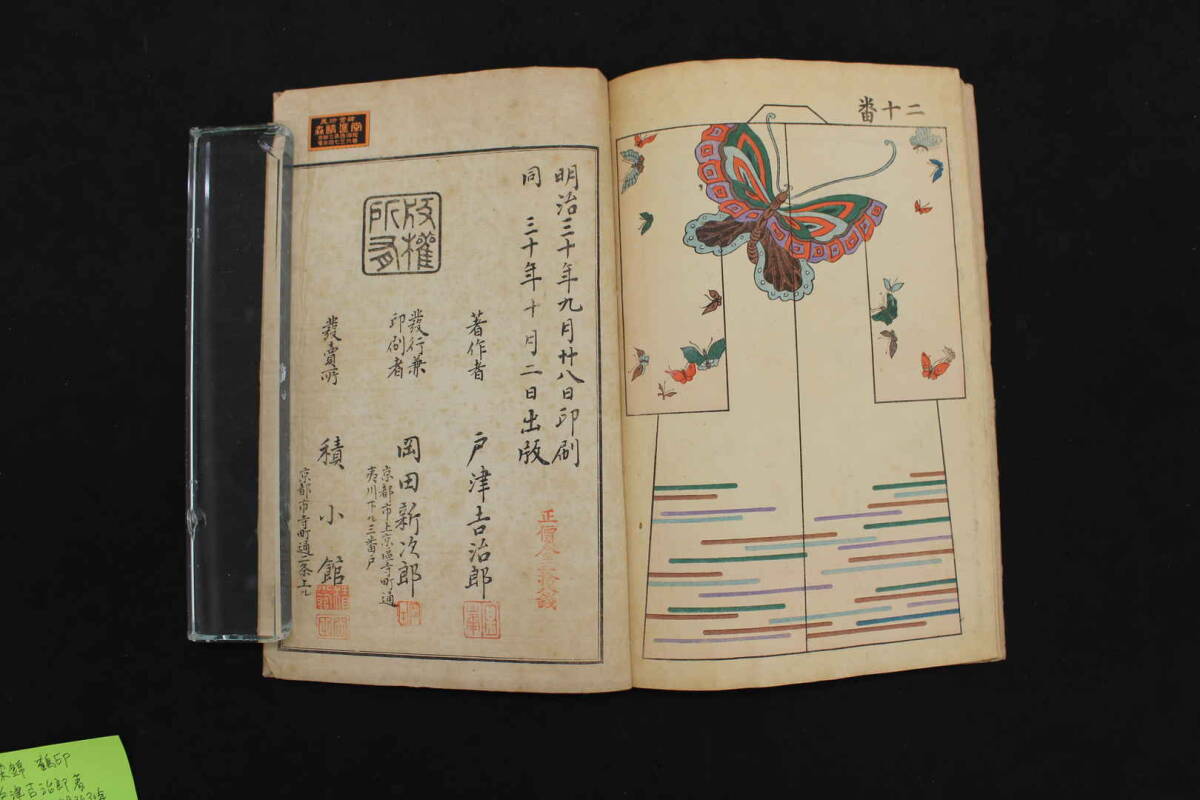 二十番
明治三十年九月廿八日印刷
同 三十年十月二日出版
正價金三拾錢
著作者 戸津吉治郎
發行兼
印刷者
岡田新次郎
京都市上京區寺町通
夷川下ル三番戸
發賣所 積小館
京都市寺町通二条上ル
版權
所有
鶴印
津吉治郎著